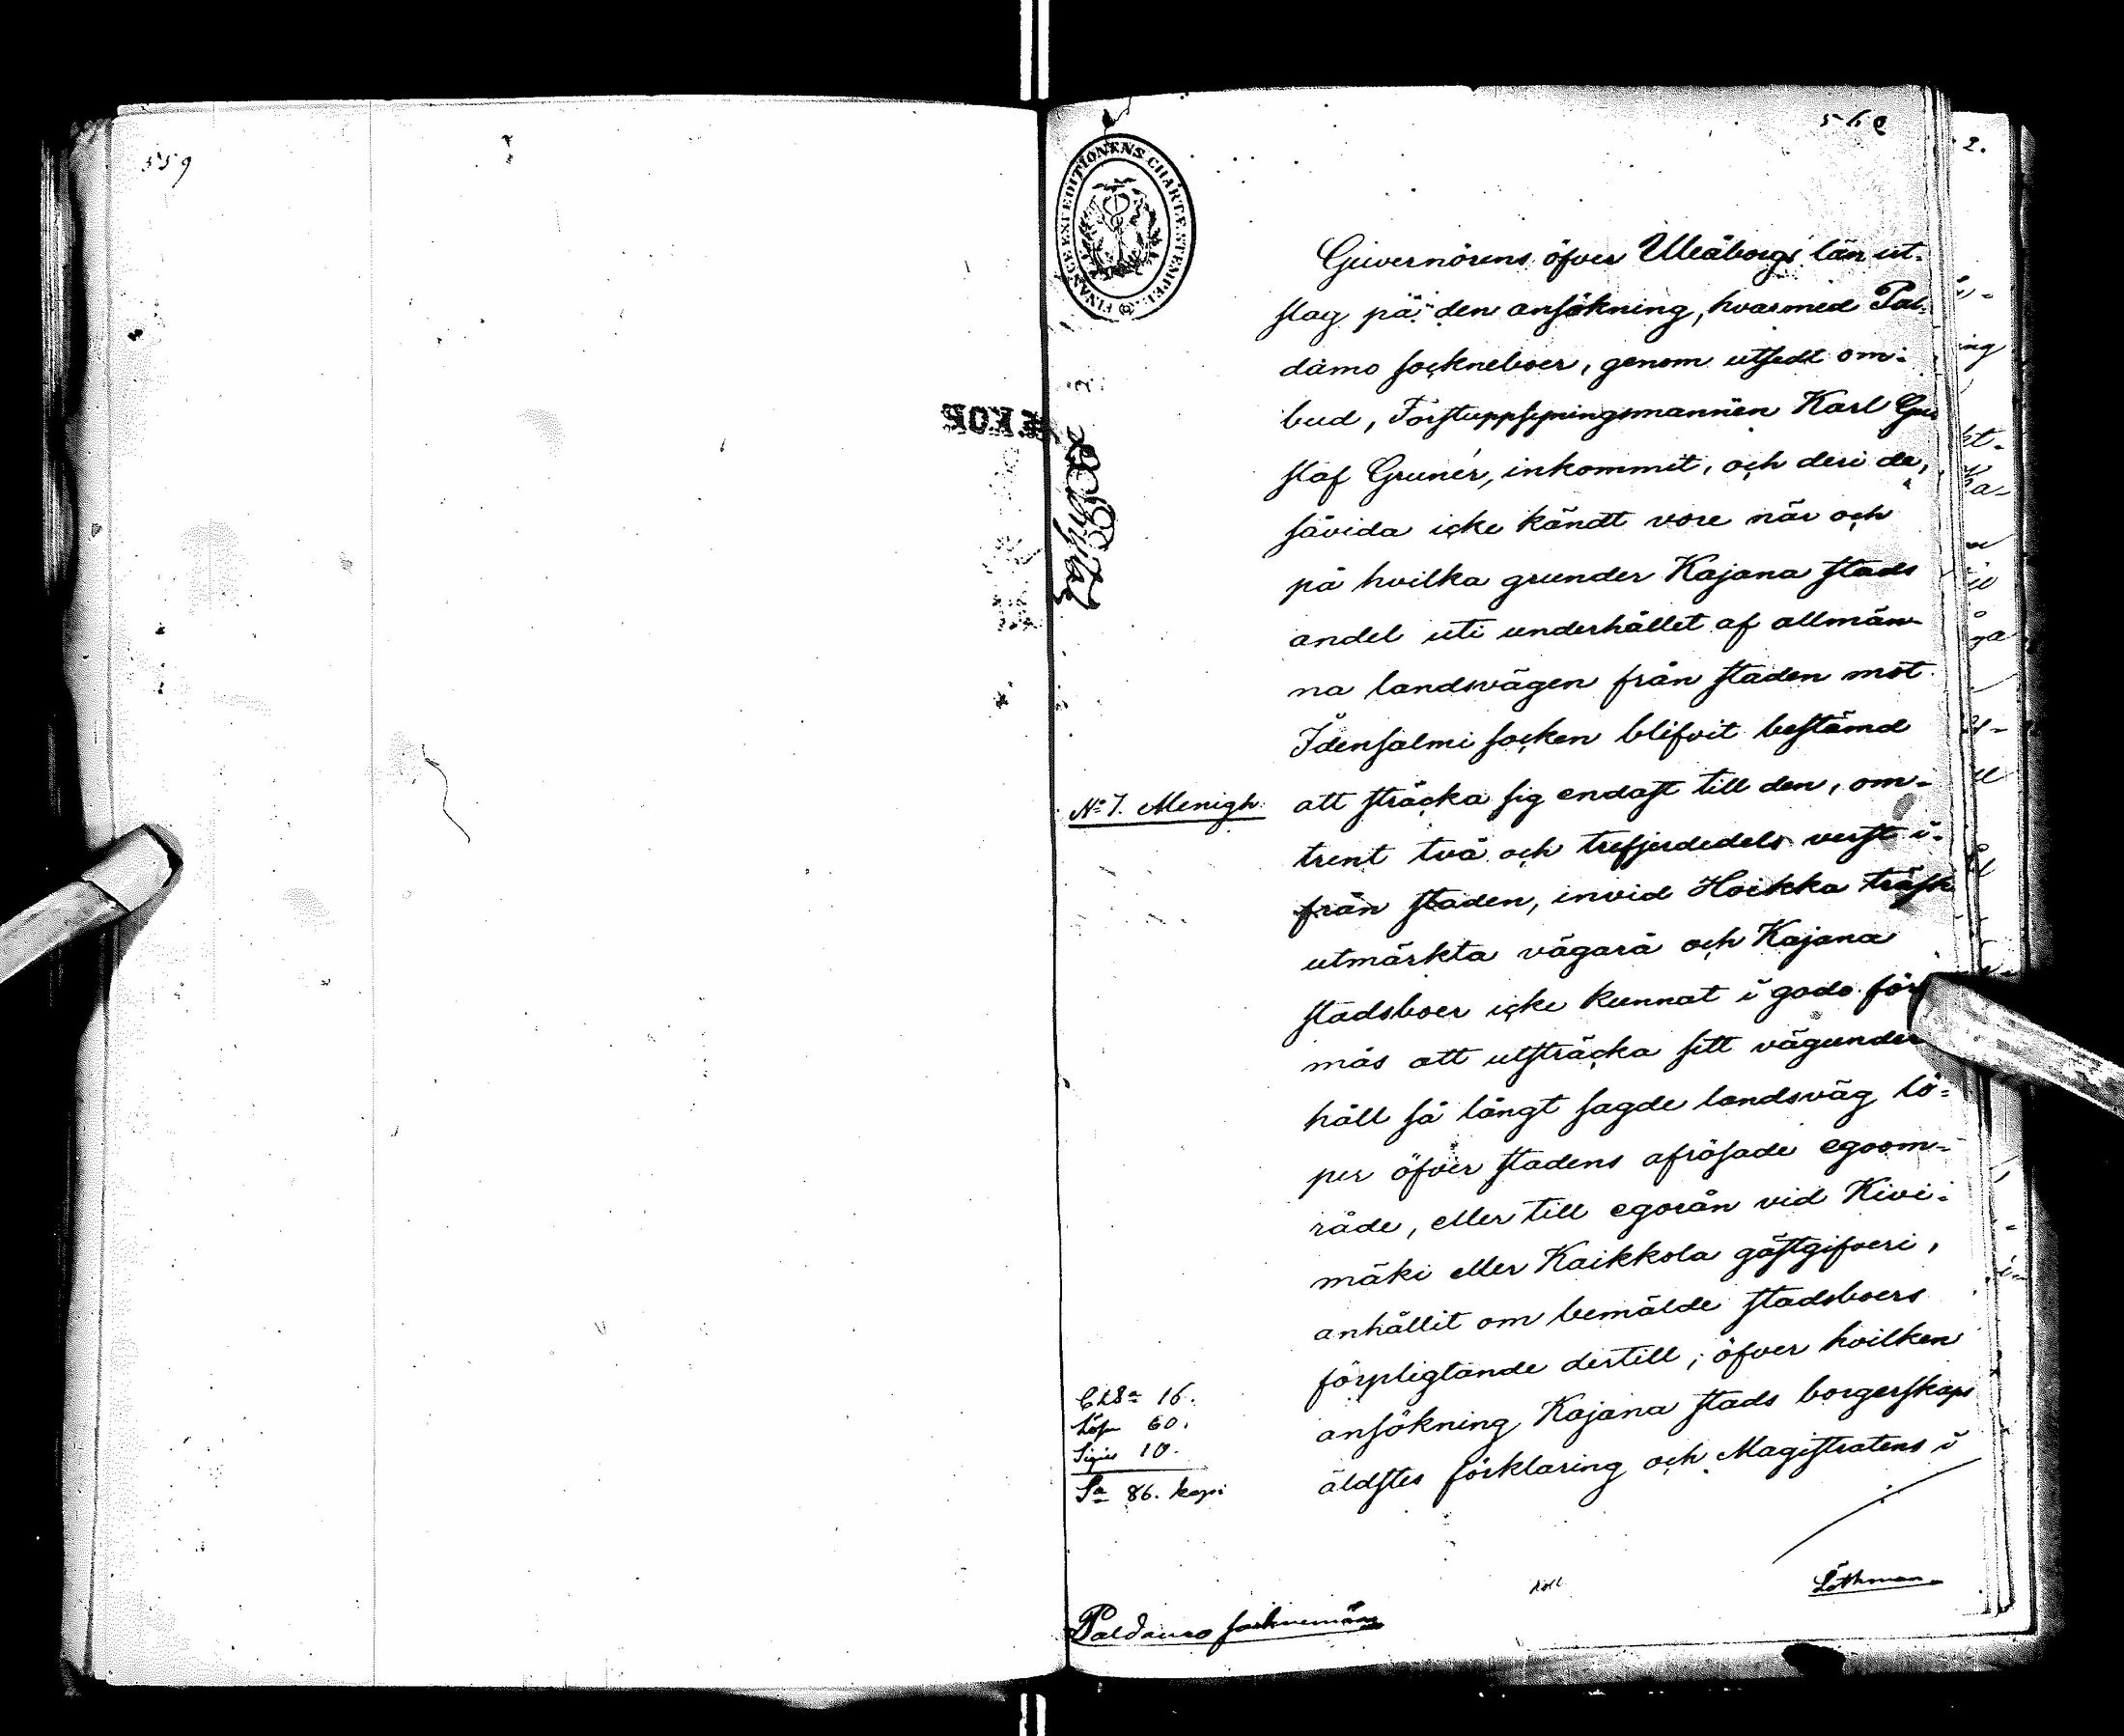 559
560
FINANCEEXPEDITIONENS CHARTÆ STEMPEL
KOP
Guvernörens öfver Uleåborgs län ut-
slag på den ansökning, hvarmed Pal-
damo sockneboer, genom utsedt om-
bud, Forstuppsyningsmannen Karl Gu
staf Gruner, inkommit, och deri de,
såvida icke kändt vore när och
på hvilka grunder Kajana stads
andel uti underhållet af allmän-
na landsvägen från staden mot
Idensalmi socken blifvit bestämd
N:o 7. Menigh.
att sträcka sig endast till den, om-
trent två och trefjerdedels verst i-
från staden, invid Hoikka träsk
utmärkta vägarå och Kajana
stadsboer icke kunnat i godo för
mås att utsträcka sitt vägunder
håll så långt sagde landsväg lö-
per öfver stadens afrösade egoom-
råde, eller till egorån vid Kivi-
mäki eller Kaikkola gästgifveri,
anhållit om bemälde stadsboers
förpligtande dertill; öfver hvilken
ansökning Kajana stads borgerskaps
äldstes förklaring och Magistratens i
Ch Sa 16.
Lös 60.
Sigil 10.
Sa 86. kopi
Löthman
Paldamo sockenemän